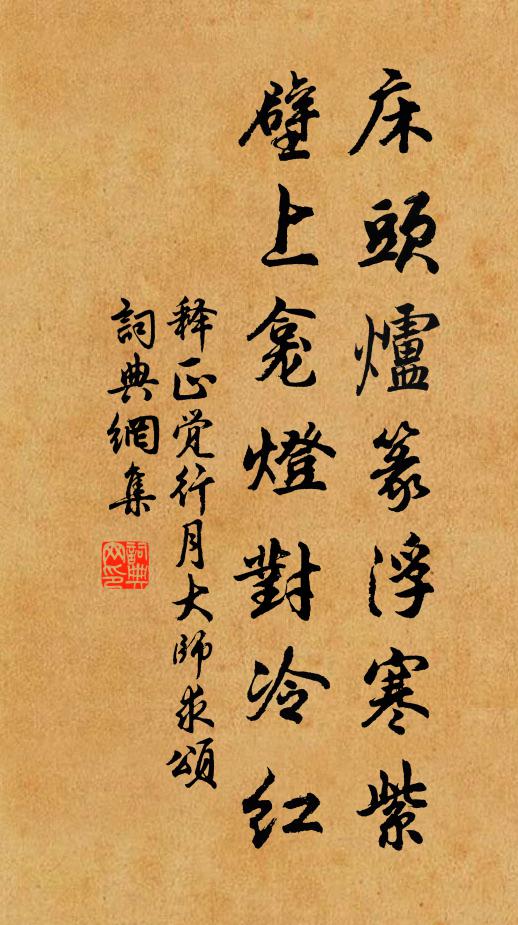 床頭爐篆浮寒紫
壁上龛燈對冷红
释正觉行月大師求頌
詞典網集
詞典网印